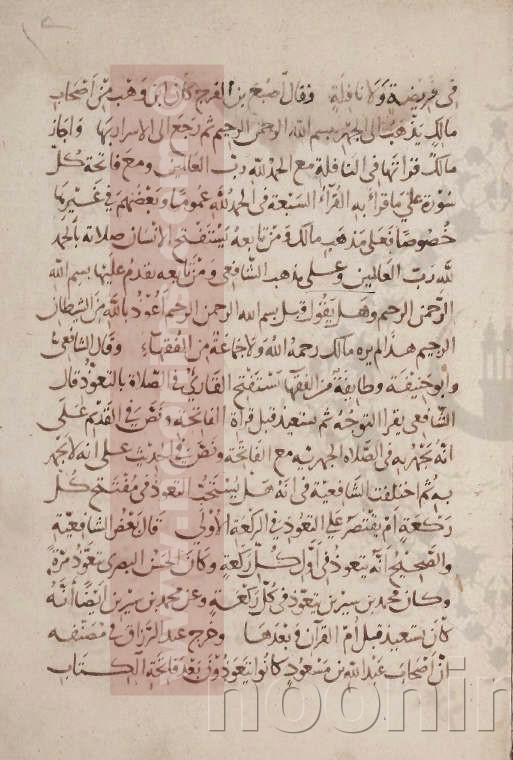 في فريضة ولا نافلة وقال اصبغ بن الفرج كان ابن وهب من اصحاب
مالك يذهب الى الجهر ببسم الله الرحمن الرحيم ثم رجع الى الاسرار بها واجاز
مالك قراتها في النافلة مع الحمد لله رب العالمين ومع فاتحة كل
سورة علي ما قرأ به القرآء السبعة في الحمد لله عموما وبعضهم في غيرها
خصوصا فعلى مذهب مالك ومن تابعه يستفتح الانسان صلاته بالحمد
لله رب العالمين وعلى مذهب الشافعي ومن تابعه يقدم عليها بسم الله
الرحمن الرحيم وهل يقول قبل بسم الله الرحمن الرحيم اعوذ بالله من الشيطان
الرجيم هذا لم يره مالك رحمه الله ولا جماعة من الفقهاء وقال الشافعي
وابو حنيفة وطايفة من الفقها يستفتح القاري في الصلاة بالتعوذ قال
الشافعي يقرا التوجه ثم يستعيذ قبل قراة الفاتحة ونص في القديم على
انه يجهر به في الصلاه الجهريه مع الفاتحة ونص في الحديث على انه لا يجهر
به ثم اختلفت الشافعية في انه هل يستحب التعوذ في مفتتح كل
ركعة ام يقتصر علي التعوذ في الركعة الاولى قال بعض الشافعية
والصحيح انه يتعوذ في اول كل ركعة وكان الحسن البصري يتعوذ مرة
وكان محمد بن سيرين يتعوذ في كل ركعة وعن محمد بن سيرين ايضا انه
كان يستعيذ قبل ام القرآن وبعدها وخرج عبد الرزاق في مصنفه
ان اصحاب عبد الله بن مسعود كانوا يتعوذون بعد فاتحة الكتاب
noonin